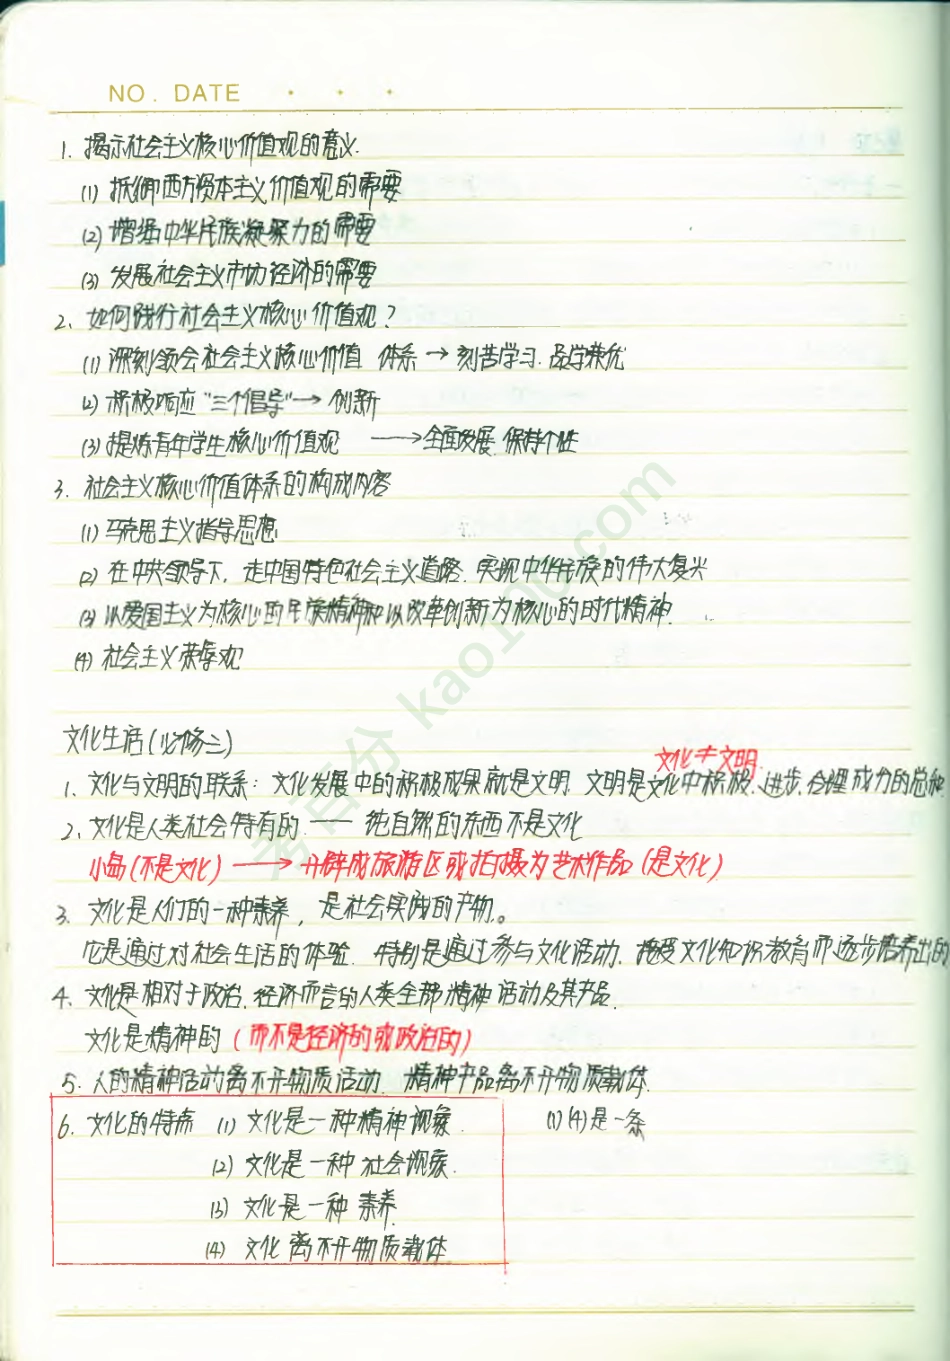 NO. DATE
1. 揭示社会主义核心价值观的意义.
(1) 抵御西方资本主义价值观的需要
(2) 增强中华民族凝聚力的需要
(3) 发展社会主义市场经济的需要
2、如何践行社会主义核心价值观？
(1) 深刻领会社会主义核心价值 体系 → 刻苦学习. 品学兼优
(2) 积极响应"三个倡导"→ 创新
(3) 提炼青年学生核心价值观 → 全面发展. 保持个性
3. 社会主义核心价值体系的构成内容
(1) 马克思主义指导思想
(2) 在中央领导下，走中国特色社会主义道路. 实现中华民族的伟大复兴
(3) 以爱国主义为核心的民族精神和以改革创新为核心的时代精神.
(4) 社会主义荣辱观
文化生活(必修三)
文化≠文明.
1、文化与文明的联系：文化发展中的积极成果就是文明. 文明是文化中积极.进步.合理成分的总和.
2、文化是人类社会特有的. —— 纯自然的东西不是文化
小岛(不是文化) → 开辟成旅游区或拍摄为艺术作品 (是文化)
3. 文化是人们的一种素养，是社会实践的产物。
它是通过对社会生活的体验. 特别是通过参与文化活动、接受文化知识教育而逐步培养出的
4、文化是相对于政治.经济而言的人类全部精神活动及其产品.
文化是精神的 (而不是经济的或政治的)
5. 人的精神活动离不开物质活动. 精神产品离不开物质载体.
6. 文化的特点 (1) 文化是一种精神现象. (1)(4)是一条
(2) 文化是一种社会现象.
(3) 文化是一种 素养.
(4) 文化 离不开物质载体.
考百分 kao100.com